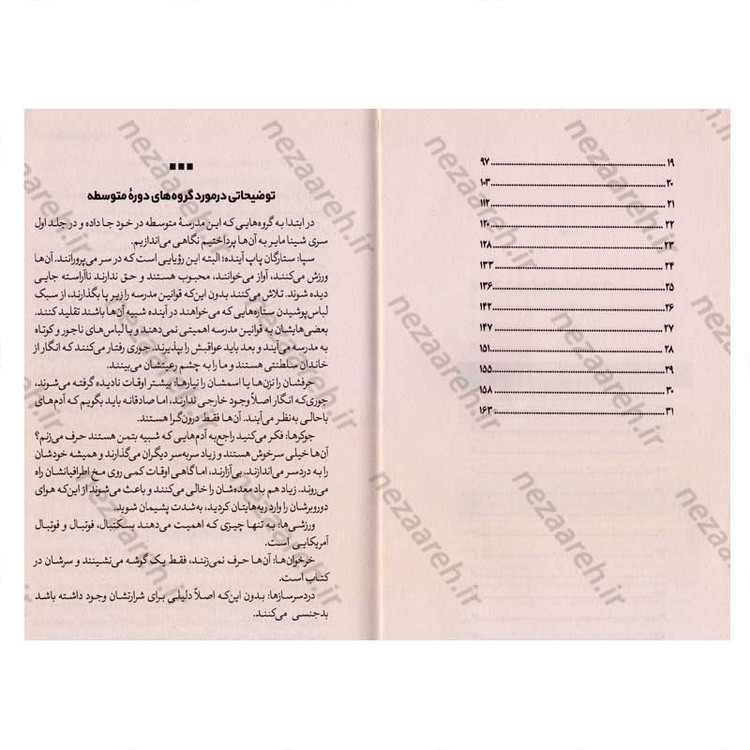 ۱۹ ........ ۹۷
۲۰ ........ ۱۰۳
۲۱ ........ ۱۱۲
۲۲ ........ ۱۲۰
۲۳ ........ ۱۲۸
۲۴ ........ ۱۳۳
۲۵ ........ ۱۳۶
۲۶ ........ ۱۴۲
۲۷ ........ ۱۴۷
۲۸ ........ ۱۵۱
۲۹ ........ ۱۵۵
۳۰ ........ ۱۵۸
۳۱ ........ ۱۶۳
توضیحاتی درمورد گروه‌های دورهٔ متوسطه
در ابتدا به گروه‌هایی که این مدرسهٔ متوسطه در خود جا داده و در جلد اول
سری شینا مایر به آن‌ها پرداختیم نگاهی می‌اندازیم.
سپا: ستارگان پاپ آینده؛ البته این رؤیایی است که در سر می‌پرورانند. آن‌ها
ورزش می‌کنند، آواز می‌خوانند، محبوب هستند و حق ندارند ناآراسته جایی
دیده شوند. تلاش می‌کنند بدون این‌که قوانین مدرسه را زیر پا بگذارند، از سبک
لباس‌پوشیدن ستاره‌هایی که می‌خواهند در آینده شبیه آن‌ها باشند تقلید کنند.
بعضی‌هایشان به قوانین مدرسه اهمیتی نمی‌دهند و با لباس‌های ناجور و کوتاه
به مدرسه می‌آیند و بعد باید عواقبش را بپذیرند. جوری رفتار می‌کنند که انگار از
خاندان سلطنتی هستند و ما را به چشم رعیتشان می‌بینند.
حرفشان را نزن‌ها یا اسمشان را نیارها: بیشتر اوقات نادیده گرفته می‌شوند،
جوری‌که انگار اصلاً وجود خارجی ندارند، اما صادقانه باید بگویم که آدم‌های
باحالی به‌نظر می‌آیند. آن‌ها فقط درون‌گرا هستند.
جوکرها: فکر می‌کنید راجع‌به آدم‌هایی که شبیه بتمن هستند حرف می‌زنم؟
آن‌ها خیلی سرخوش هستند و زیاد سربه‌سر دیگران می‌گذارند و همیشه خودشان
را به دردسر می‌اندازند. بی‌آزارند، اما گاهی اوقات کمی روی مخ اطرافیانشان راه
می‌روند. زیاد هم باد معده‌شان را خالی می‌کنند و باعث می‌شوند از این‌که هوای
دوروبرشان را وارد ریه‌هایتان کردید، به‌شدت پشیمان شوید.
ورزشی‌ها: به تنها چیزی که اهمیت می‌دهند بسکتبال، فوتبال و فوتبال
آمریکایی است.
خرخوان‌ها: آن‌ها حرف نمی‌زنند، فقط یک گوشه می‌نشینند و سرشان در
کتاب است.
دردسرسازها: بدون این‌که اصلاً دلیلی برای شرارتشان وجود داشته باشد
بدجنسی می‌کنند.
nezaareh.ir
nezaareh.ir
nezaareh.ir
nezaareh.ir
nezaareh.ir
nezaareh.ir
nezaareh.ir
nezaareh.ir
nezaareh.ir